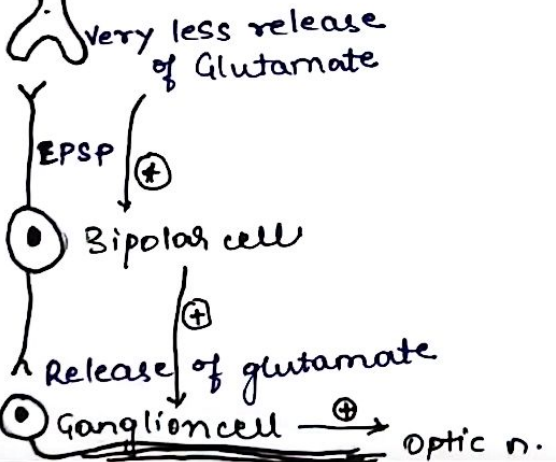 Very less release
of Glutamate
EPSP
+
Bipolar cell
+
Release of glutamate
Ganglion cell
+
Optic n.